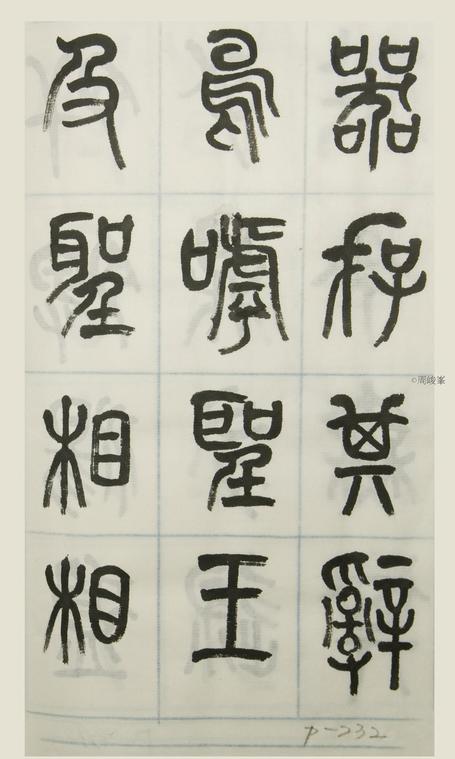 器存其辭
烏嘑聖王
及聖相相
©周峻峯
p-232